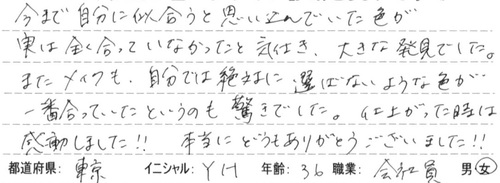 今まで自分に似合うと思い込んでいた色が
実は全く合っていなかったと気付き、大きな発見でした。
またメイクも、自分では絶対に選ばないような色が
一番合っていたというのも驚きでした。仕上がった時は
感動しました!! 本当にどうもありがとうございました!!
都道府県: 東京 イニシャル: YH 年齢: 36 職業: 会社員 男 女